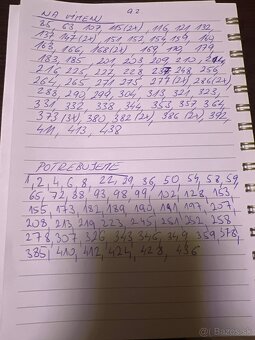 NA VÝMENU
25, 63, 107, 115(2x), 116, 121, 132,
137, 147(2x), 151, 152, 154, 159, 160
163, 166, 168(2x), 169, 170, 179,
182, 185, 201, 203, 209, 210, 214
216, 225, 227, 228, 237, 248, 256
264, 265, 271, 275, 277(2x), 286(2x),
288, 290, 299, 304, 313, 321, 323,
331, 332, 338, 344, 353, 357, 364,
373(3x), 380, 382 (2x), 386(2x), 392,
411, 413, 438
POTREBUJEME
1, 2, 4, 6, 8, 22, 29, 36, 50, 54, 58, 59
65, 72, 38, 93, 98, 99, 102, 128, 153
155, 173, 182, 189, 190, 191, 197, 207,
208, 213, 219, 223, 245, 251, 252, 258
278, 307, 326, 343, 346, 349, 359, 378,
385, 410, 412, 424, 428, 436
bazos.sk